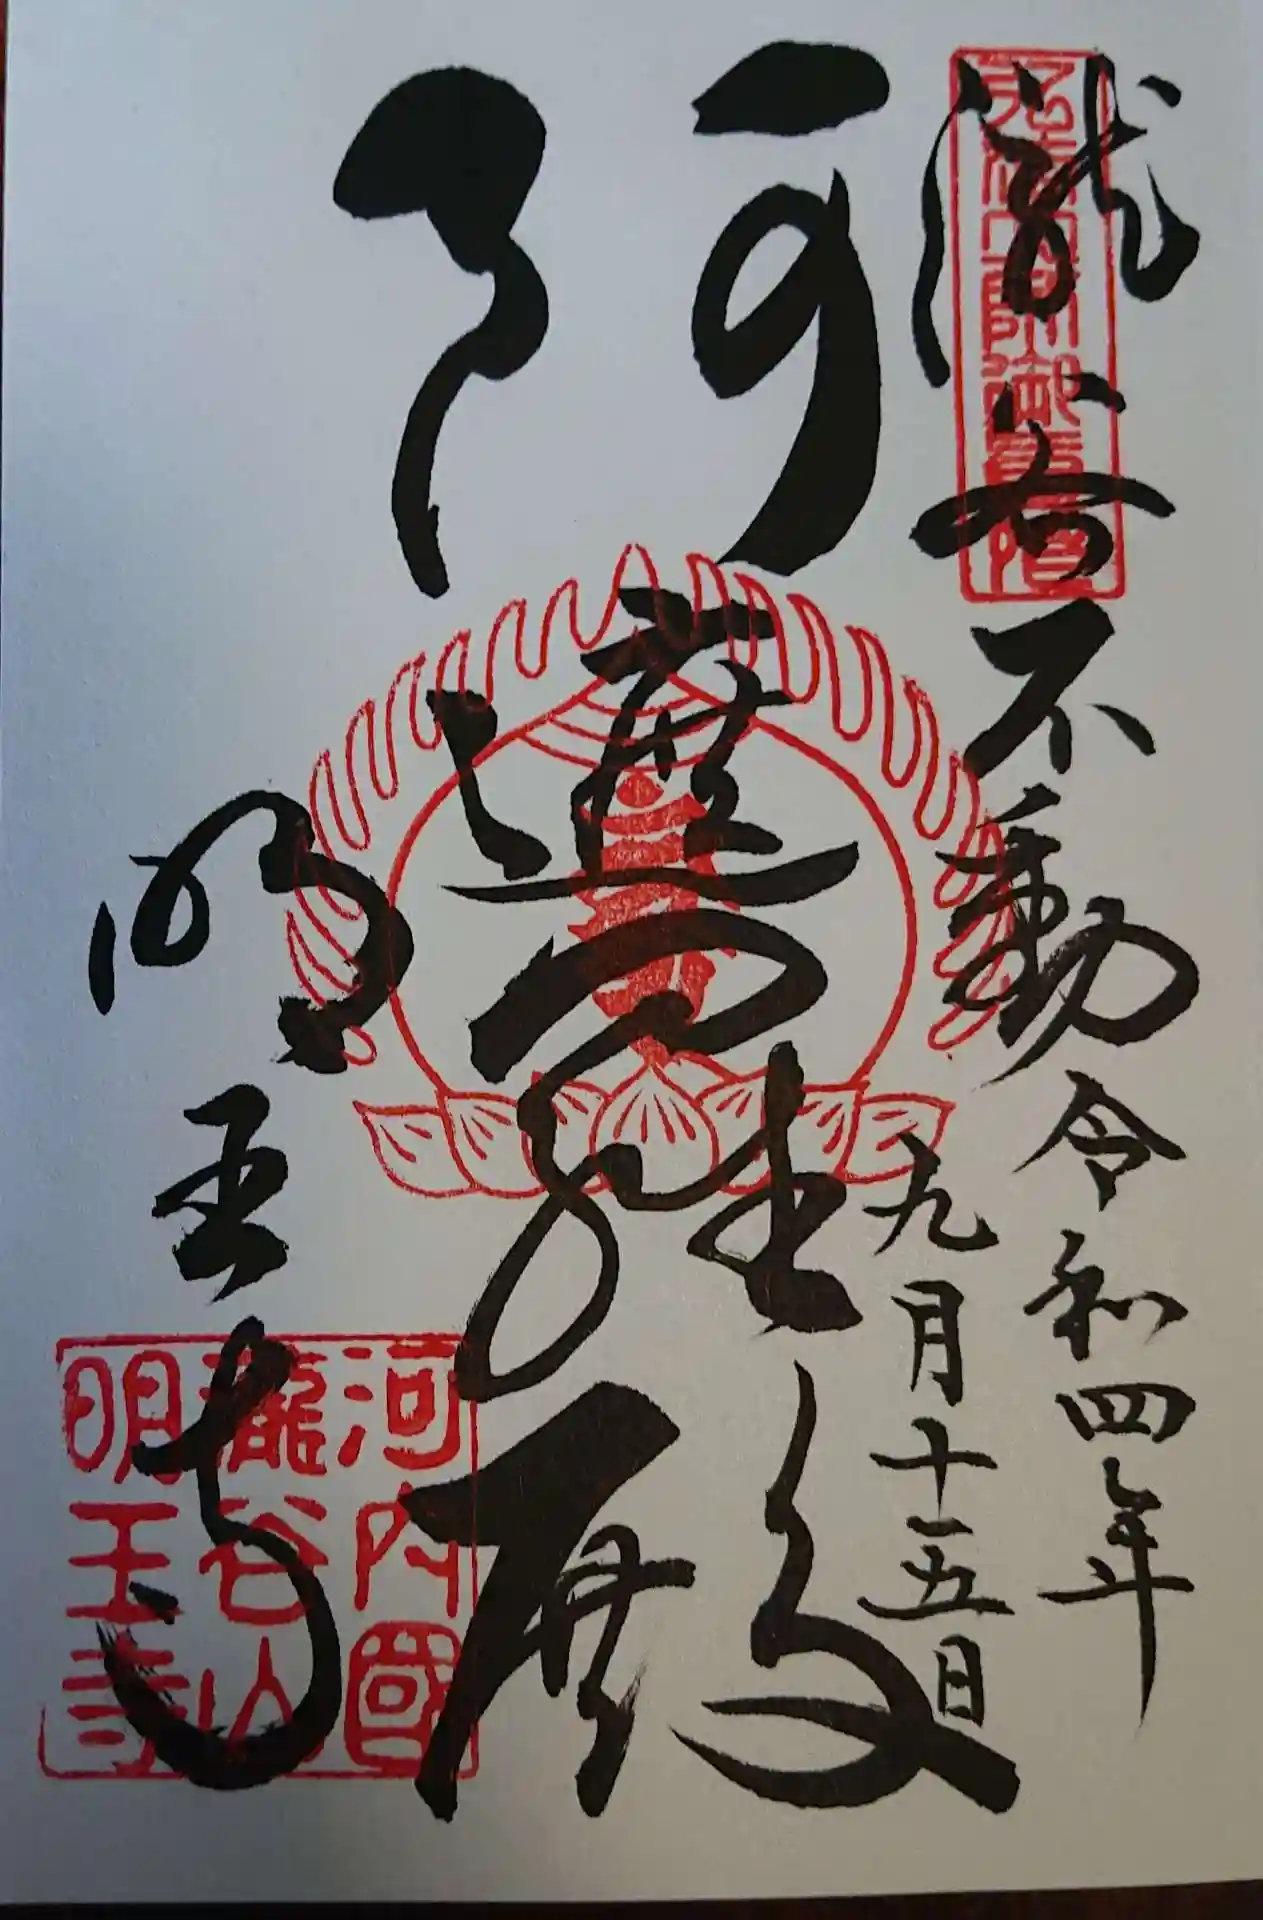 瀧谷不動
令和四年
九月十五日
阿遮羅殿
明王寺
河内國
瀧谷山
明王寺